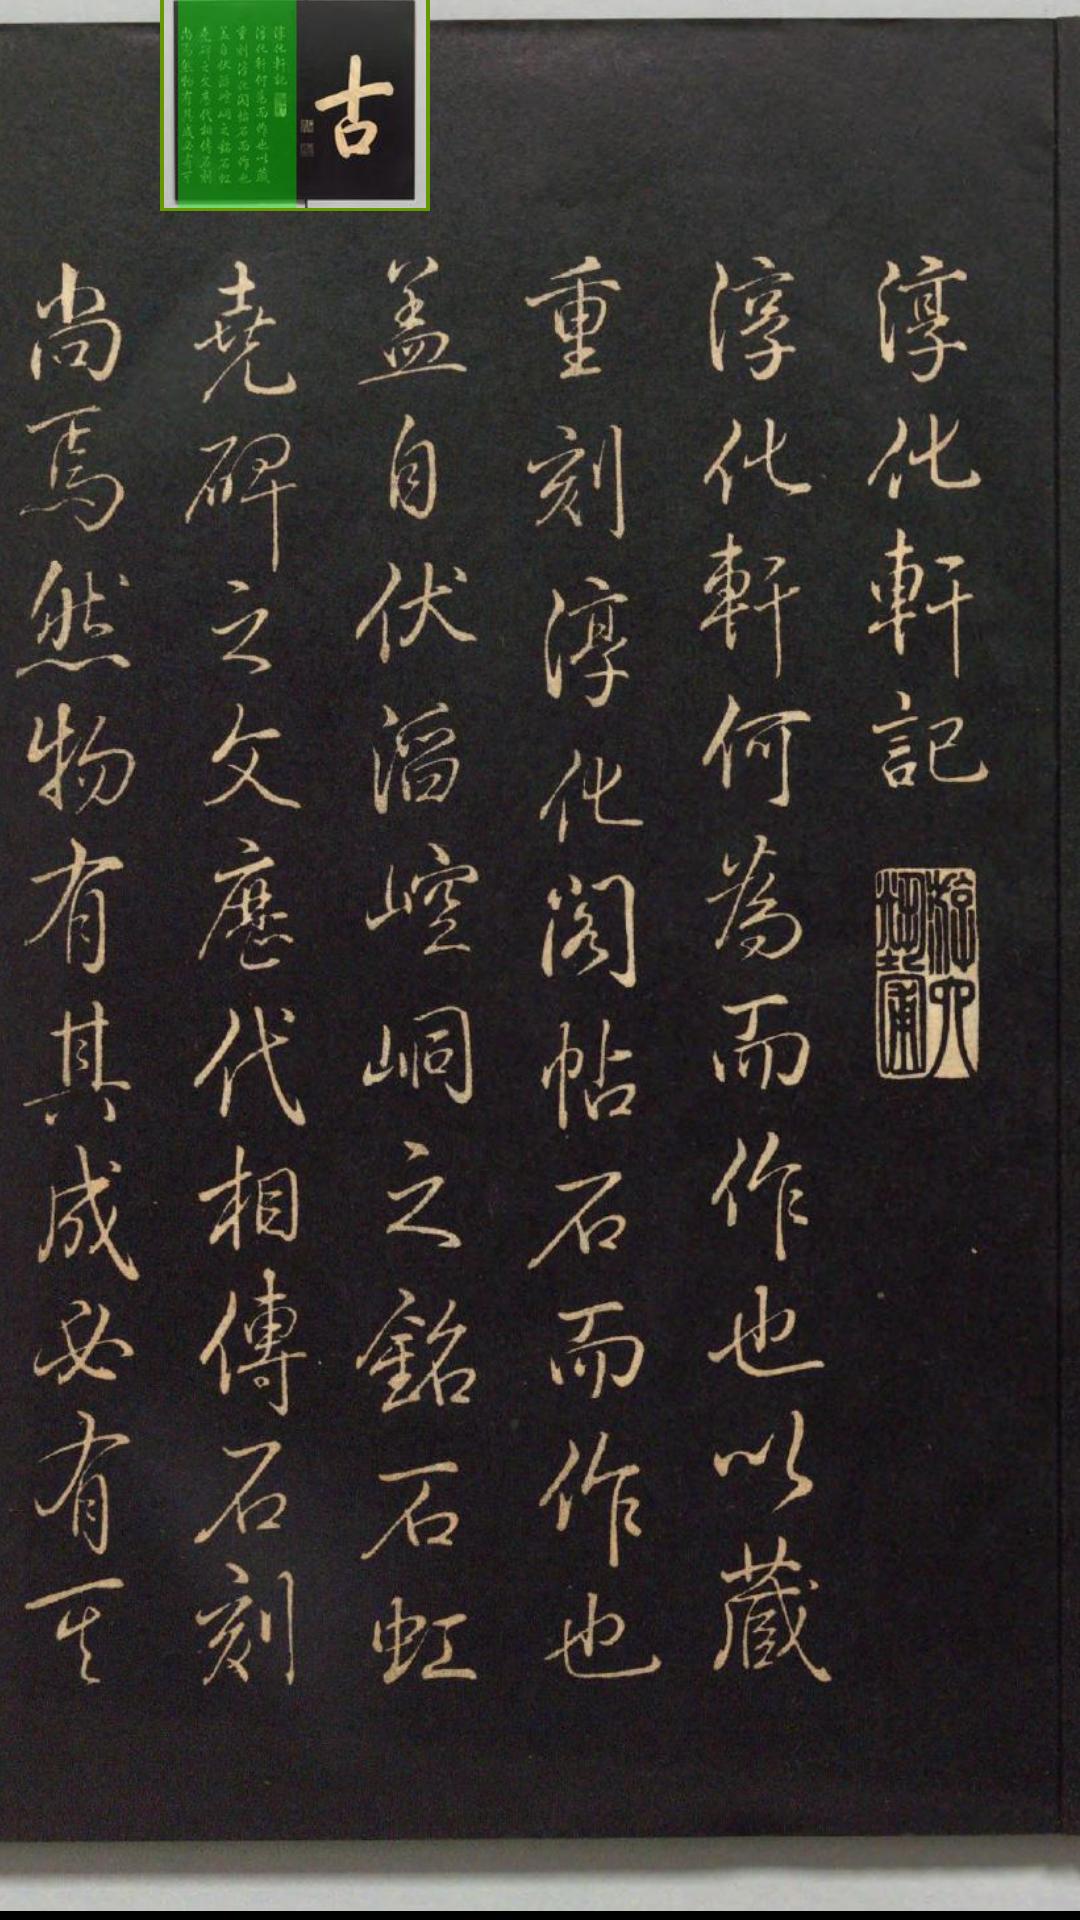 古
淳化軒記
游六藝圃
淳化軒何為而作也以藏
重刻淳化閣帖石而作也
盖自伏滔崆峒之銘石虹
堯碑之文歷代相傳石刻
尚焉然物有其成必有其